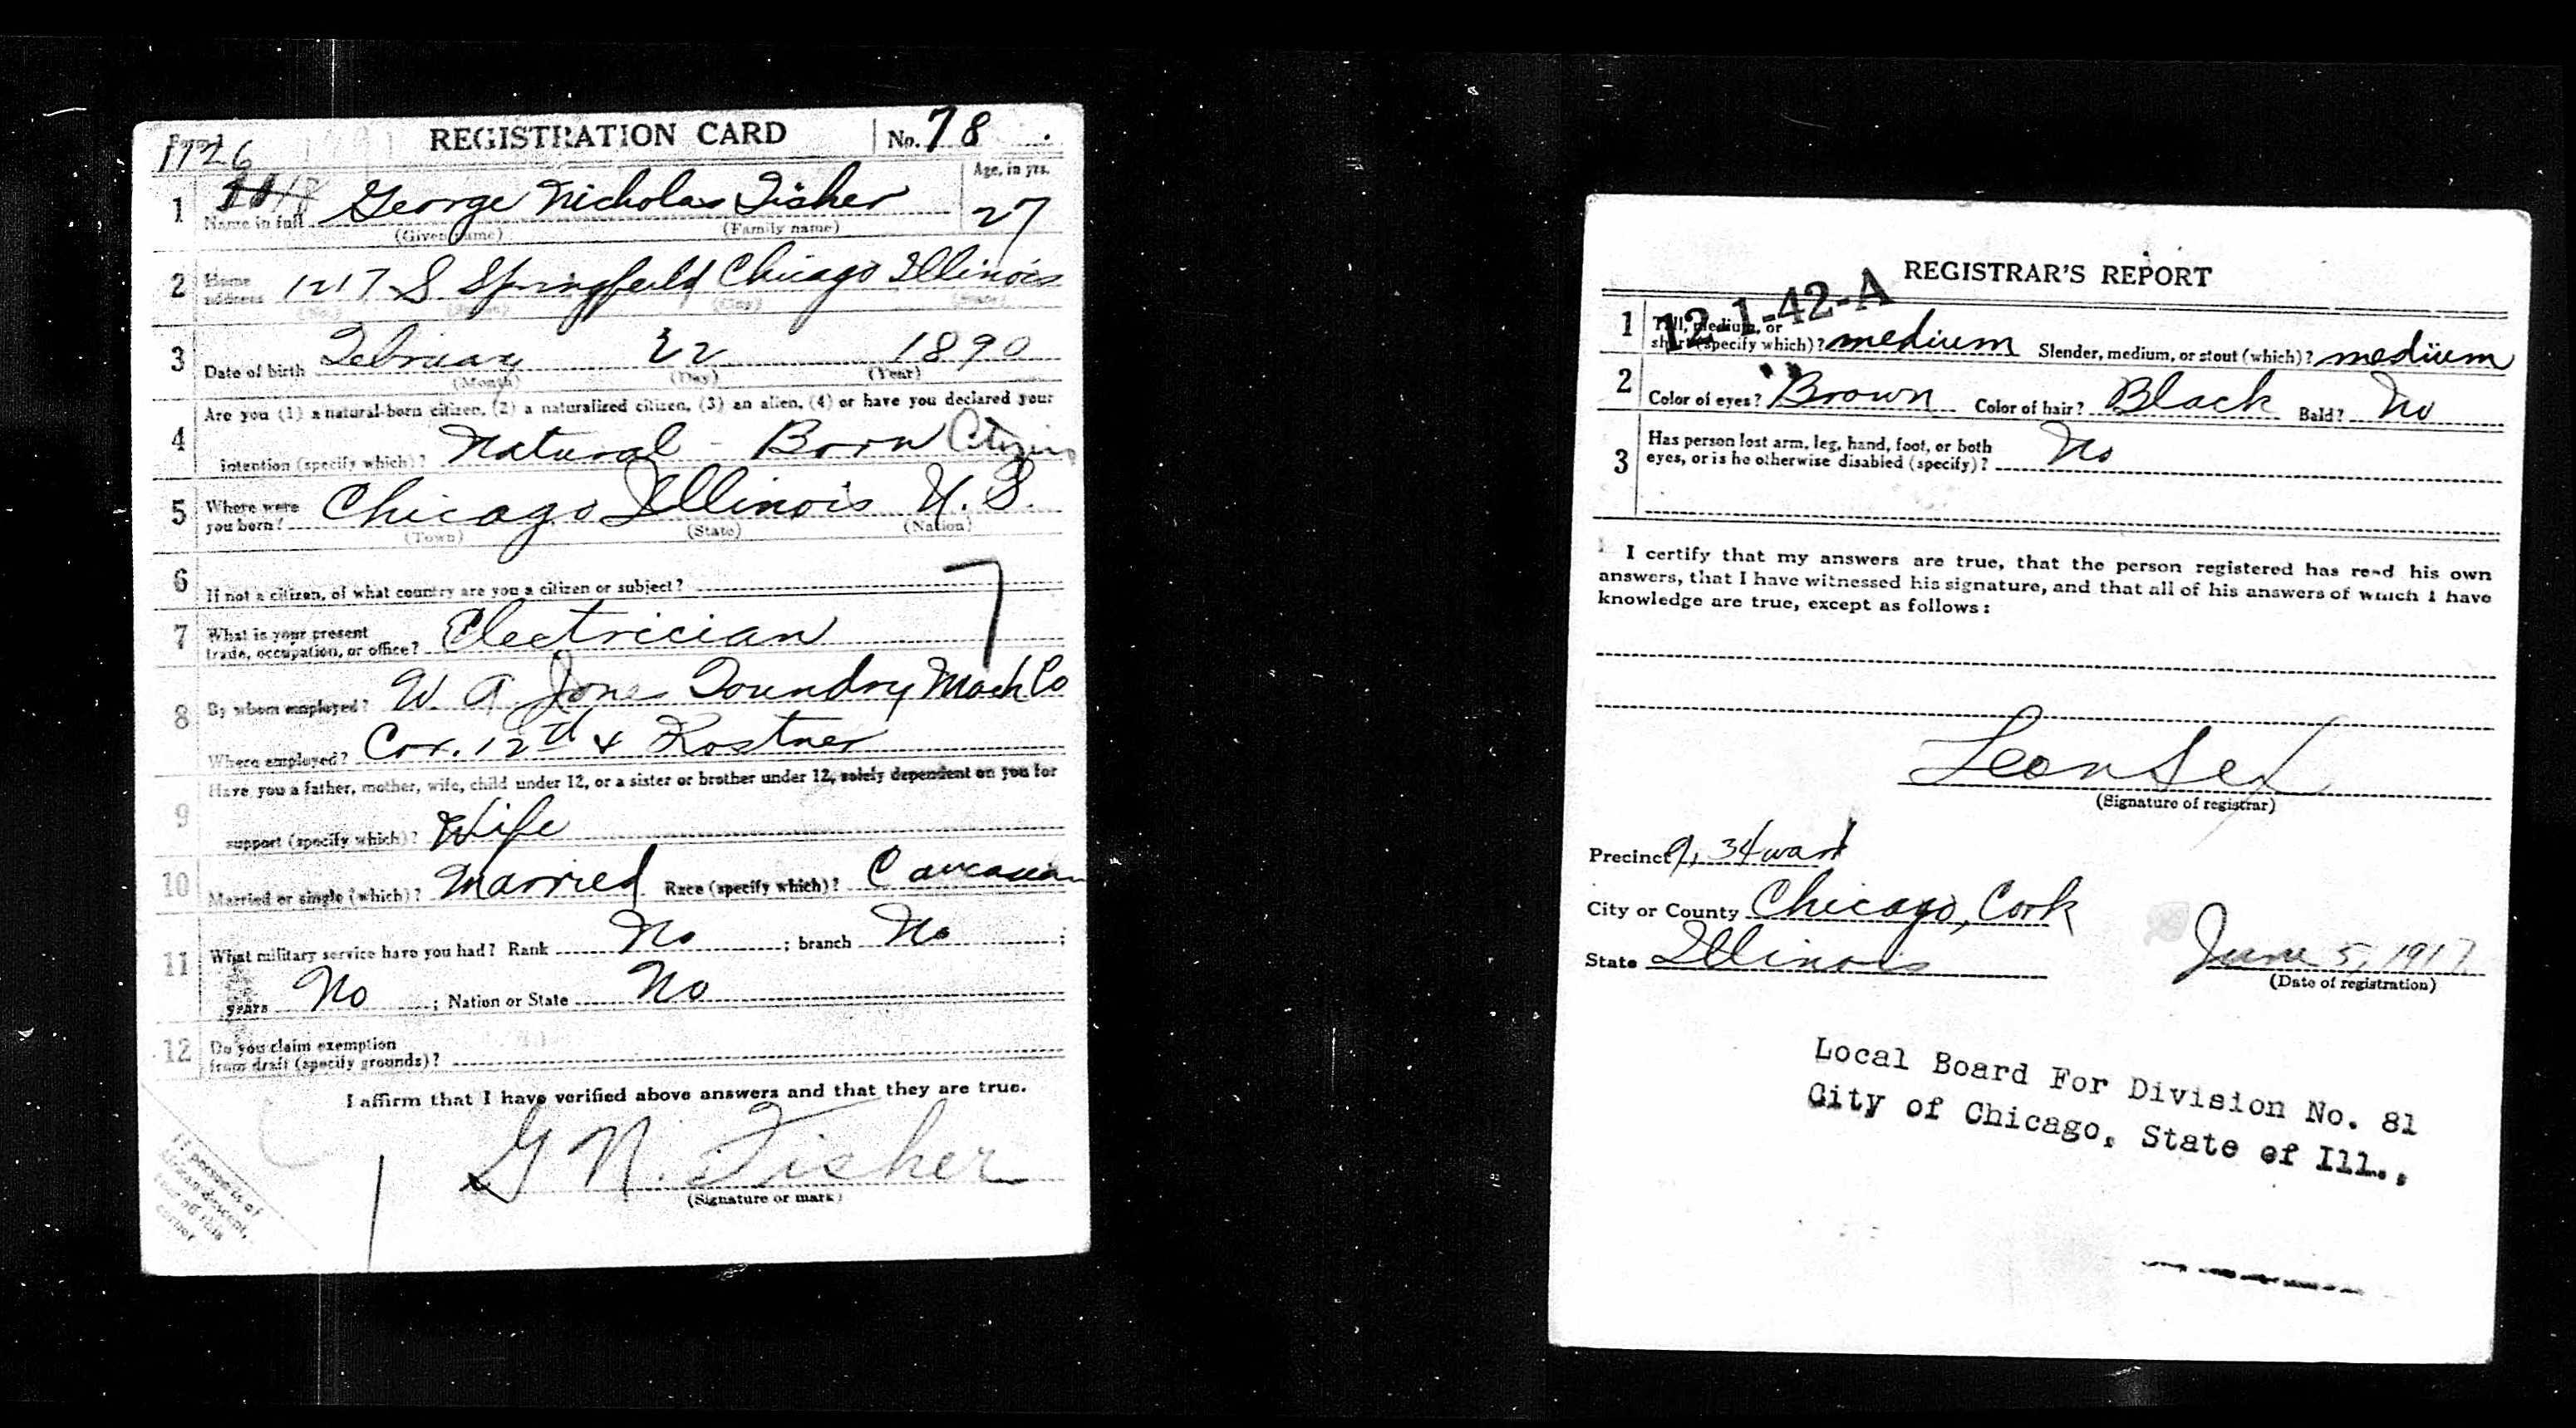 1726
REGISTRATION CARD No. 78
Age, in yrs.
1 Name in full George Nicholas Fisher 27
(Given name) (Family name)
2 Home address 1217 S Springfield Chicago Illinois
(No.) (Street) (City) (State)
3 Date of birth February 22 1890
(Month) (Day) (Year)
Are you (1) a natural-born citizen, (2) a naturalized citizen, (3) an alien, (4) or have you declared your
4 intention (specify which)? Natural - Born Citizen
5 Where were you born? Chicago Illinois U.S.
(Town) (State) (Nation)
6 If not a citizen, of what country are you a citizen or subject?
7 What is your present trade, occupation, or office? Electrician 7
8 By whom employed? W. A. Jones Foundry Mach Co
Where employed? Cor. 12th & Kostner
Have you a father, mother, wife, child under 12, or a sister or brother under 12, solely dependent on you for
9 support (specify which)? Wife
10 Married or single (which)? Married Race (specify which)? Caucasian
11 What military service have you had? Rank No ; branch No ;
years No ; Nation or State No
12 Do you claim exemption
from draft (specify grounds)?
I affirm that I have verified above answers and that they are true.
G N. Fisher
(Signature or mark)
If person is of
African descent,
tear off this
corner
REGISTRAR'S REPORT
12-1-42-A
1 Tall, medium, or
short (specify which)? medium Slender, medium, or stout (which)? medium
2 Color of eyes? Brown Color of hair? Black Bald? No
3 Has person lost arm, leg, hand, foot, or both
eyes, or is he otherwise disabled (specify)? No
I certify that my answers are true, that the person registered has read his own
answers, that I have witnessed his signature, and that all of his answers of which I have
knowledge are true, except as follows:
(Signature of registrar)
Precinct 9, 34 ward
City or County Chicago, Cook
State Illinois June 5, 1917
(Date of registration)
Local Board For Division No. 81
City of Chicago, State of Ill.,